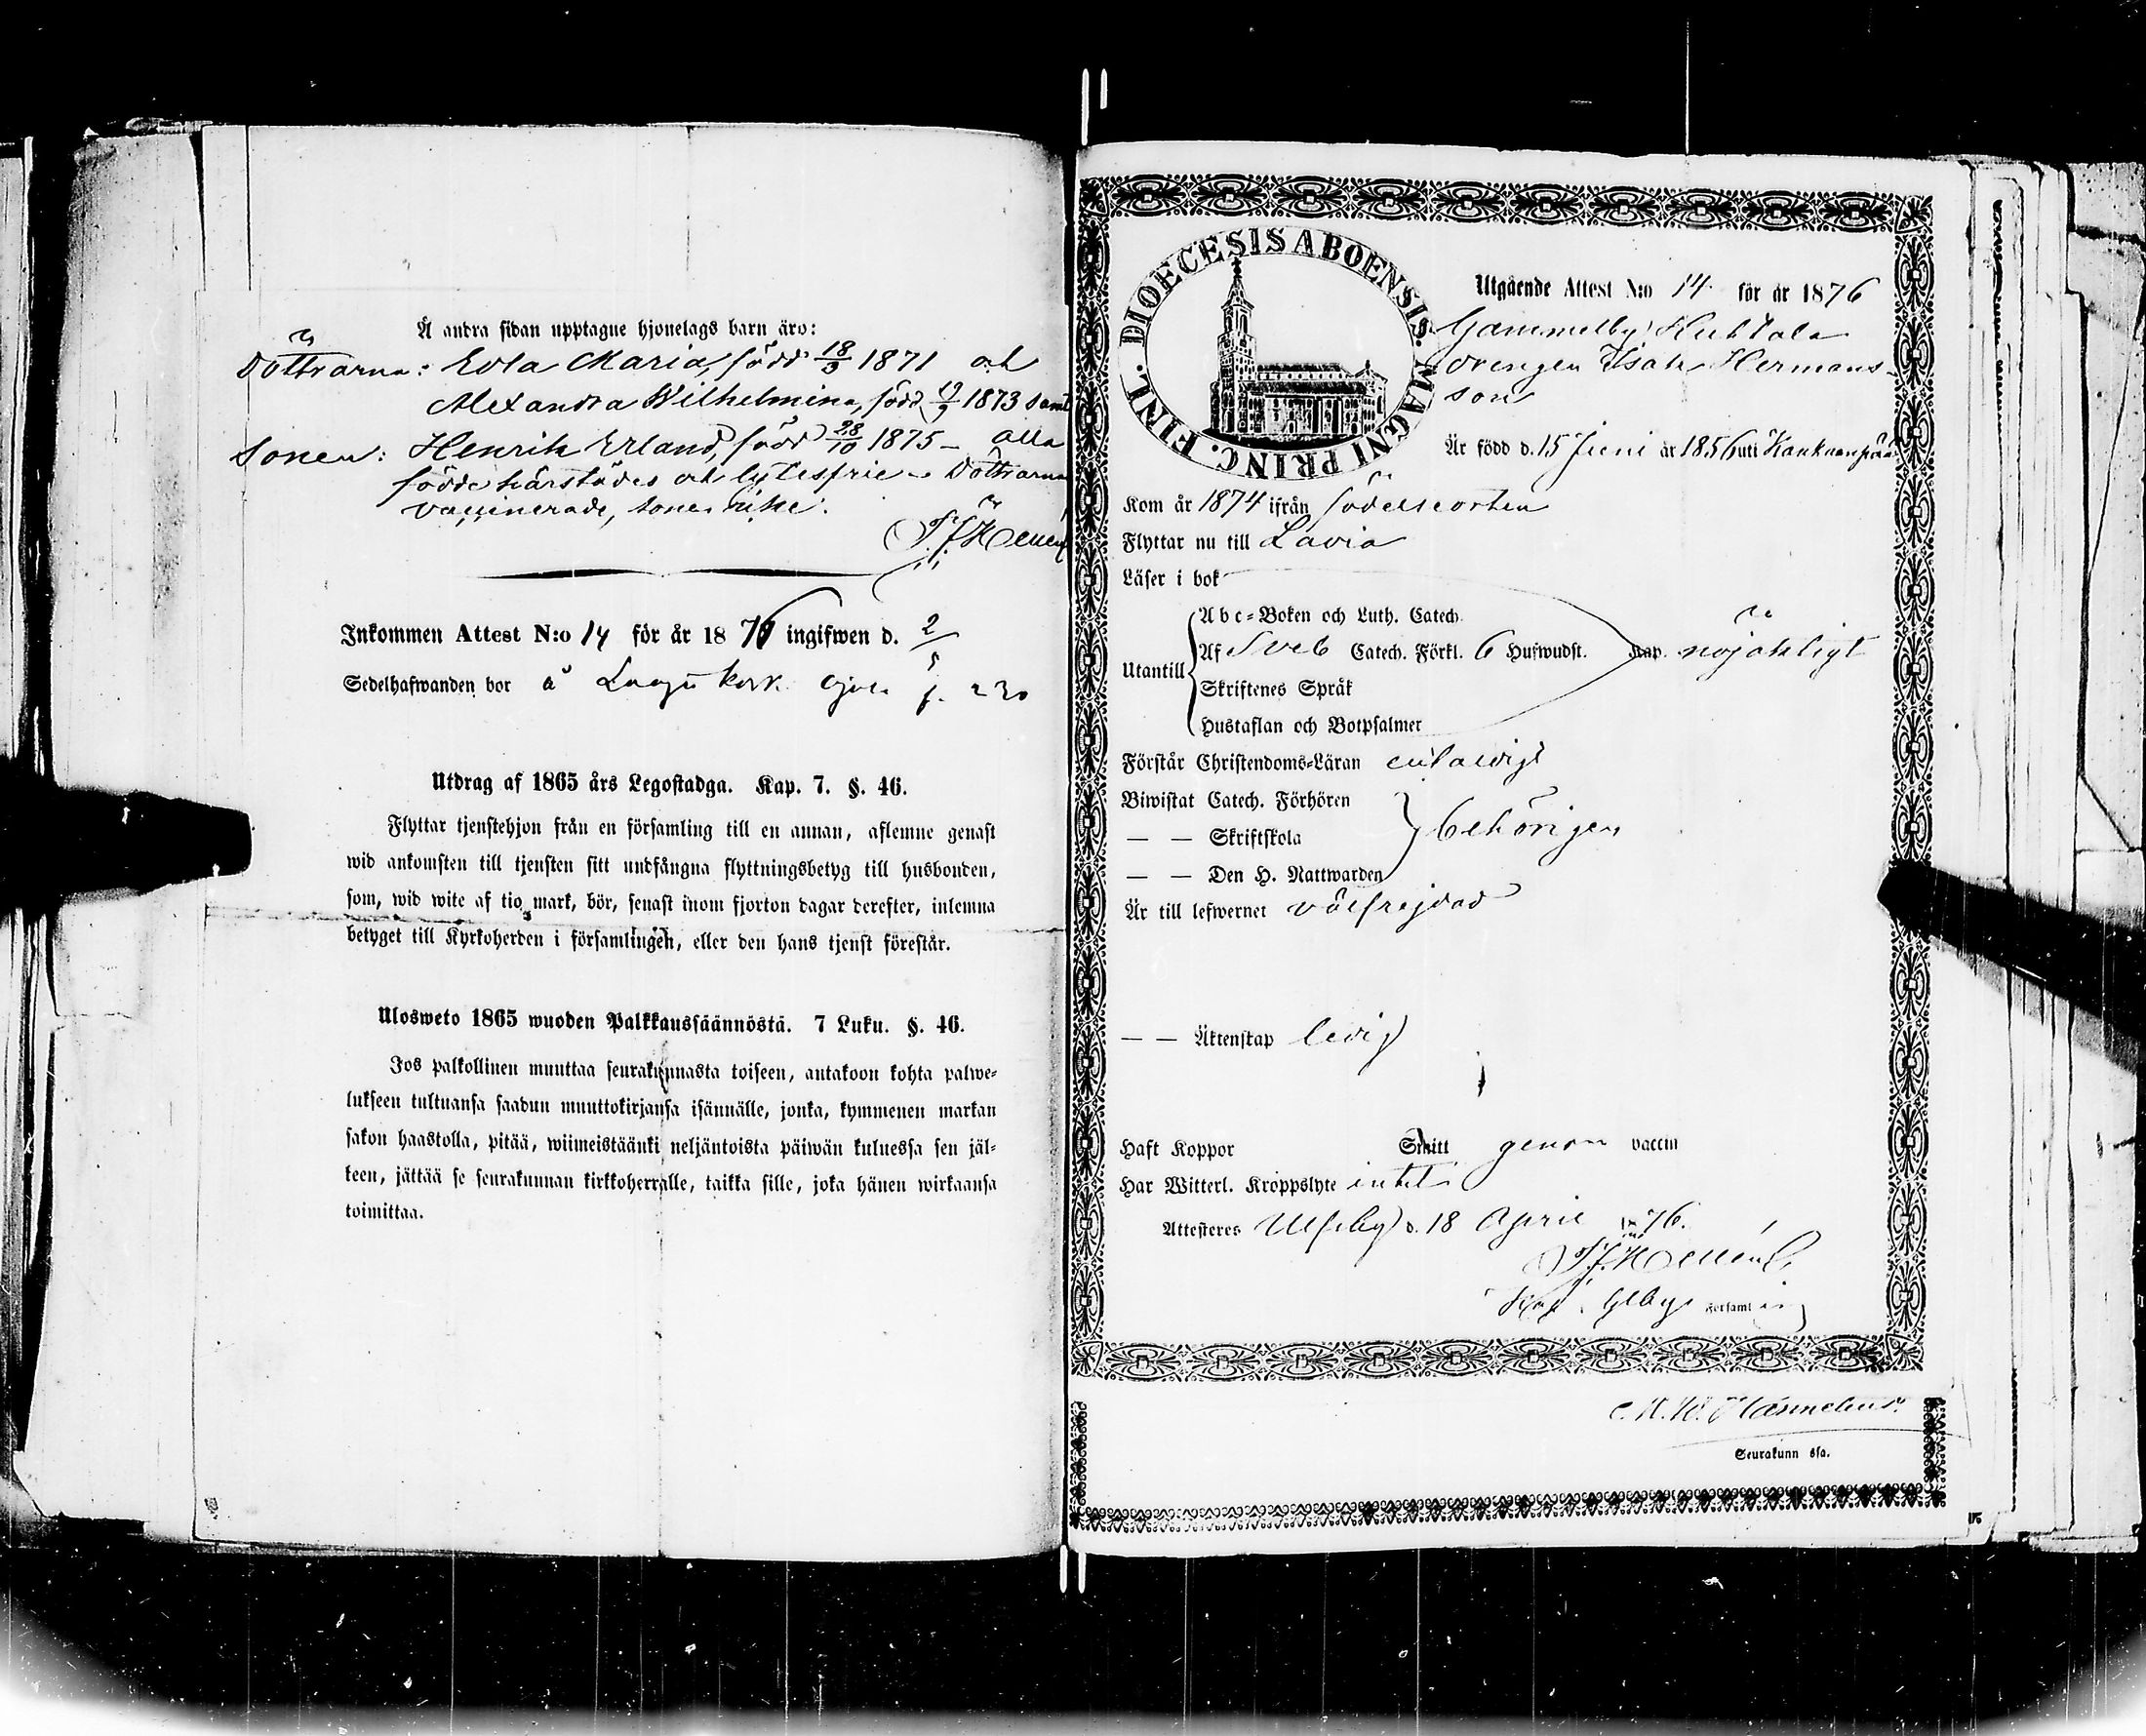 Å andra sidan upptagne hjonelags barn äro:
Döttrarna: Eva Maria, född 18/3 1871 och
Alexandra Wilhelmina, född 1873 samt
Sonen: Henrik Erland, född 28/10 1875 – alla
födde härstädes och lytesfrie – Döttrarna
vaccinerade, sonen icke.
Inkommen Attest N:o 14 för år 1876 ingifwen d. 2/5
Sedelhafwanden bor å f. 230
Utdrag af 1865 års Legostadga. Kap. 7. §. 46.
Flyttar tjenstehjon från en församling till en annan, aflemne genast
wid ankomsten till tjensten sitt undfångna flyttningsbetyg till husbonden,
som, wid wite af tio mark, bör, senast inom fjorton dagar derefter, inlemna
betyget till Kyrkoherden i församlingen, eller den hans tjenst förestår.
Ulosweto 1865 wuoden Palkkaussäännöstä. 7 Luku. §. 46.
Jos palkollinen muuttaa seurakunnasta toiseen, antakoon kohta palwe-
lukseen tultuansa saadun muuttokirjansa isännälle, jonka, kymmenen markan
sakon haastolla, pitää, wiimeistäänki neljäntoista päiwän kuluessa sen jäl-
keen, jättää se seurakunnan kirkkoherralle, taikka sille, joka hänen wirkaansa
toimittaa.
DIOECESIS ABOENSIS. MAGNI PRINC. FINL.
Utgående Attest N:o 14 för år 1876
Gammelby Kuhtala
drengen Isak Hermans-
son
Är född d. 15 Juni år 1856 uti Kankaanpää
Kom år 1874 ifrån födelseorten
Flyttar nu till Lavia
Läser i bok
Utantill
Abc-Boken och Luth. Catech.
Af Sveb Catech. Förkl. 6 Hufwudst. Kap. nöjaktigt
Skriftenes Språk
Hustaflan och Botpsalmer
Förstår Christendoms-Läran enfaldigt
Biwistat Catech. Förhören
— — Skriftskola behörigen
— — Den H. Nattwarden
Är till lefwernet välfrejdad
— — Äktenskap ledig
Haft Koppor Smitt genom vaccin
Har Witterl. Kroppslyte intet
Attesteras Ulfsby d. 18 April 1876.
Församling
Seurakunnassa.